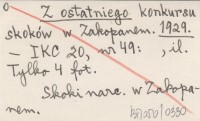 Z ostatniego konkursu
skoków w Zakopanem. 1929.
— IKC 20, nr 49: , il.
Tylko 4 fot.
Skoki narc. w Zakopa-
nem.